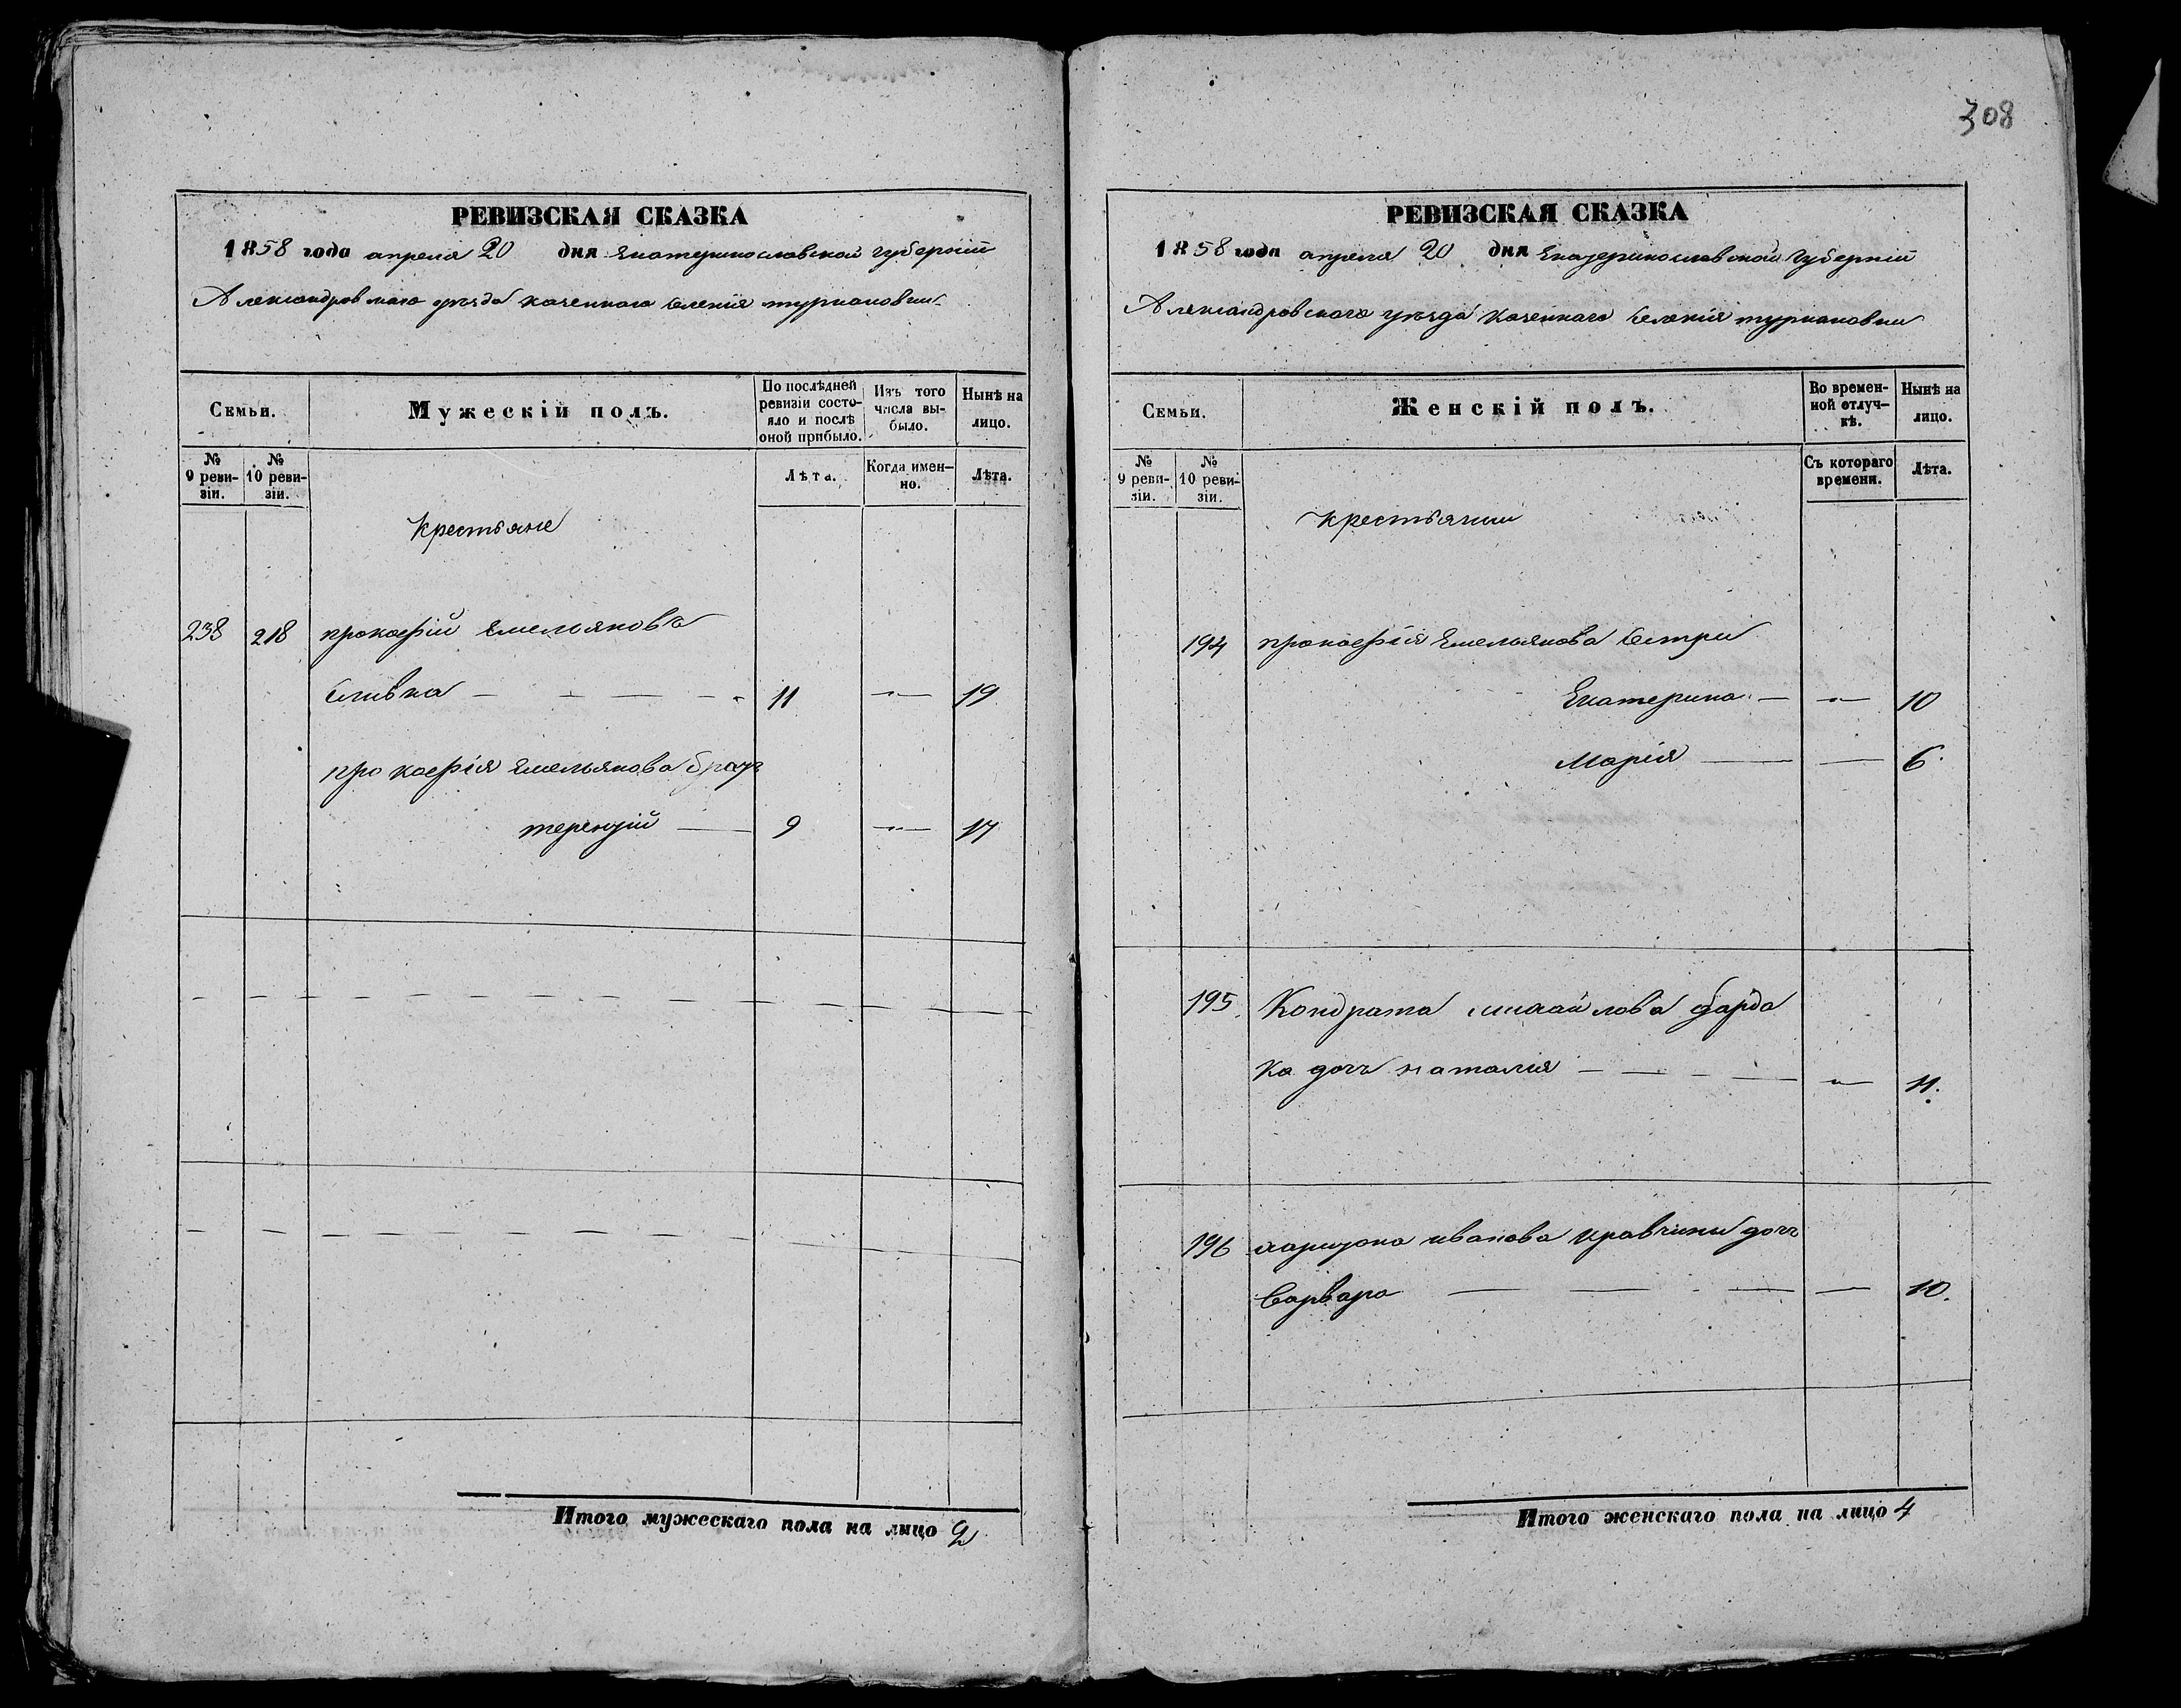 308
РЕВИЗСКАЯ СКАЗКА
1858 года апреля 20 дня Екатеринославской губерніи
Александровскаго уезда казеннаго селенія туркановки
Семьи.
Мужескій полъ.
По послѣдней ревизіи состо-
яло и послѣ оной прибыло.
Изъ того числа вы-
было.
Нынѣ на лицо.
№ 9 реви-
зіи.
№ 10 реви-
зіи.
Лѣта.
Когда имен-
но.
Лѣта.
Крестьяне
238 218 прокофій Емельяновъ
Сливка — — — — 11 —"— 19
прокофія Емельянова братъ
терентій — 9 —"— 17
Итого мужескаго пола на лицо 2
РЕВИЗСКАЯ СКАЗКА
1858 года апреля 20 дня Екатеринославской губерніи
Александровскаго уезда казеннаго селенія туркановки
Семьи.
Женскій полъ.
Во времен-
ной отлуч-
кѣ.
Нынѣ на лицо.
№ 9 реви-
зіи.
№ 10 реви-
зіи.
Съ котораго времени.
Лѣта.
крестьянки
194 прокофія Емельянова сестри
Екатерина — —"— 10
Марія — — 6.
195. Кондрата михайлова
ка дочь наталия — — — — —"— 11.
196 харитона иванова кравчины дочь
Варвара — — — — 10.
Итого женскаго пола на лицо 4